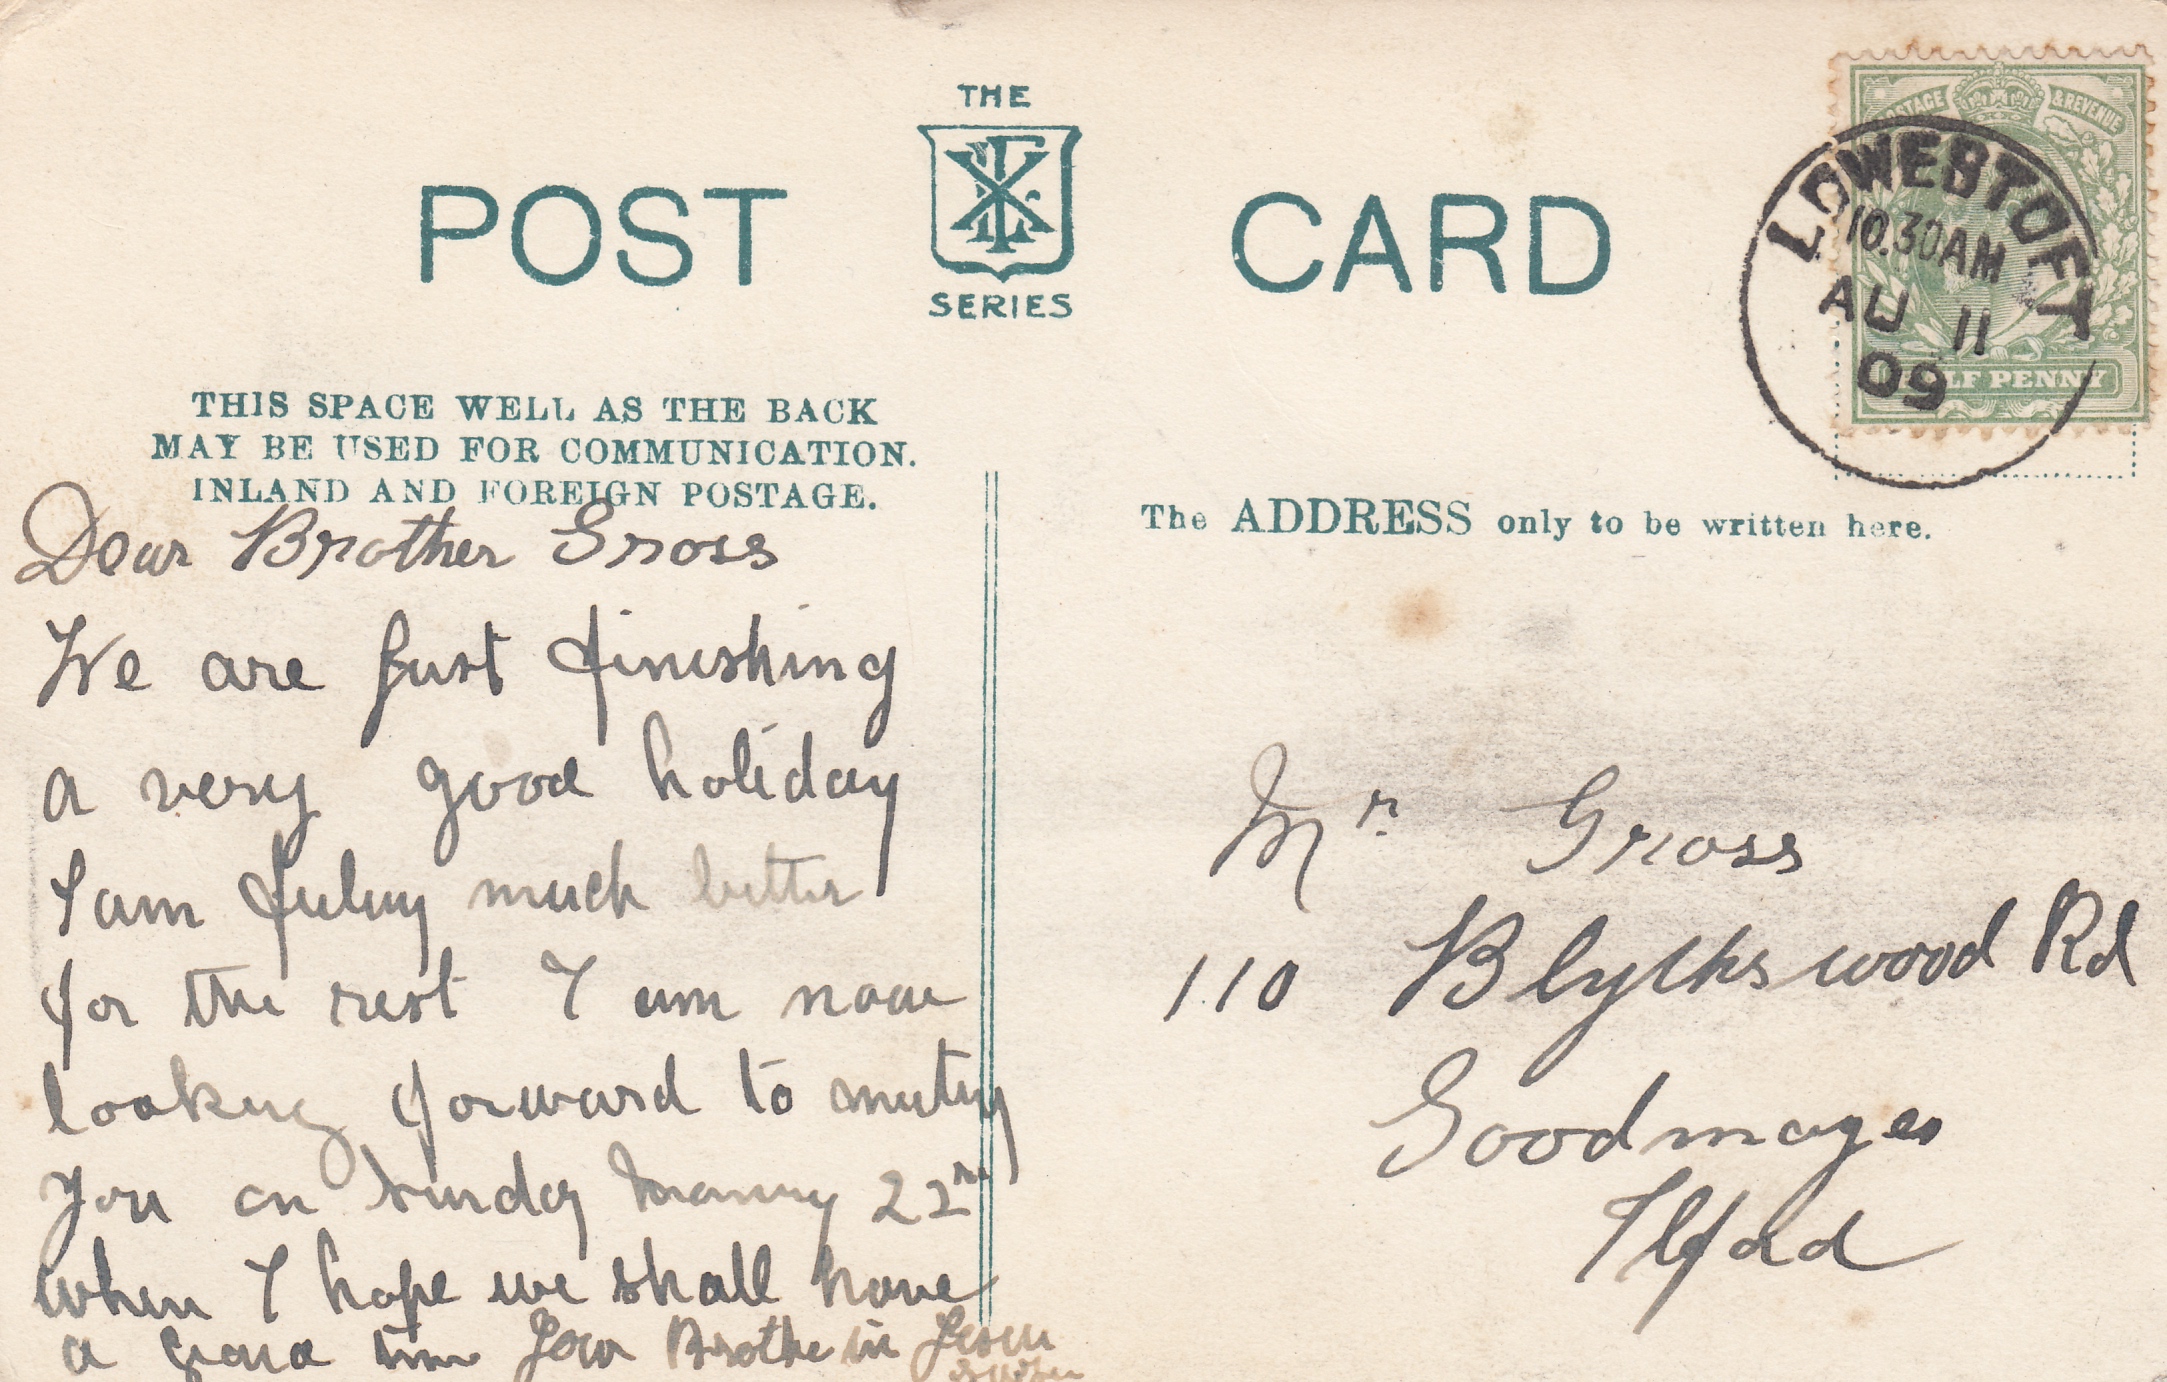 THE
SERIES
POST CARD
POSTAGE & REVENUE
LOWESTOFT
10.30AM
AU 11
09
HALF PENNY
THIS SPACE WELL AS THE BACK
MAY BE USED FOR COMMUNICATION.
INLAND AND FOREIGN POSTAGE.
Dear Brother Gross
We are just finishing
a very good holiday
I am feeling much better
for the rest I am now
looking forward to meeting
you on Sunday morning 22nd
when I hope we shall have
a grand time Your Brother in Jesus
The ADDRESS only to be written here.
Mr Gross
110 Blythswood Rd
Goodmayes
Ilford